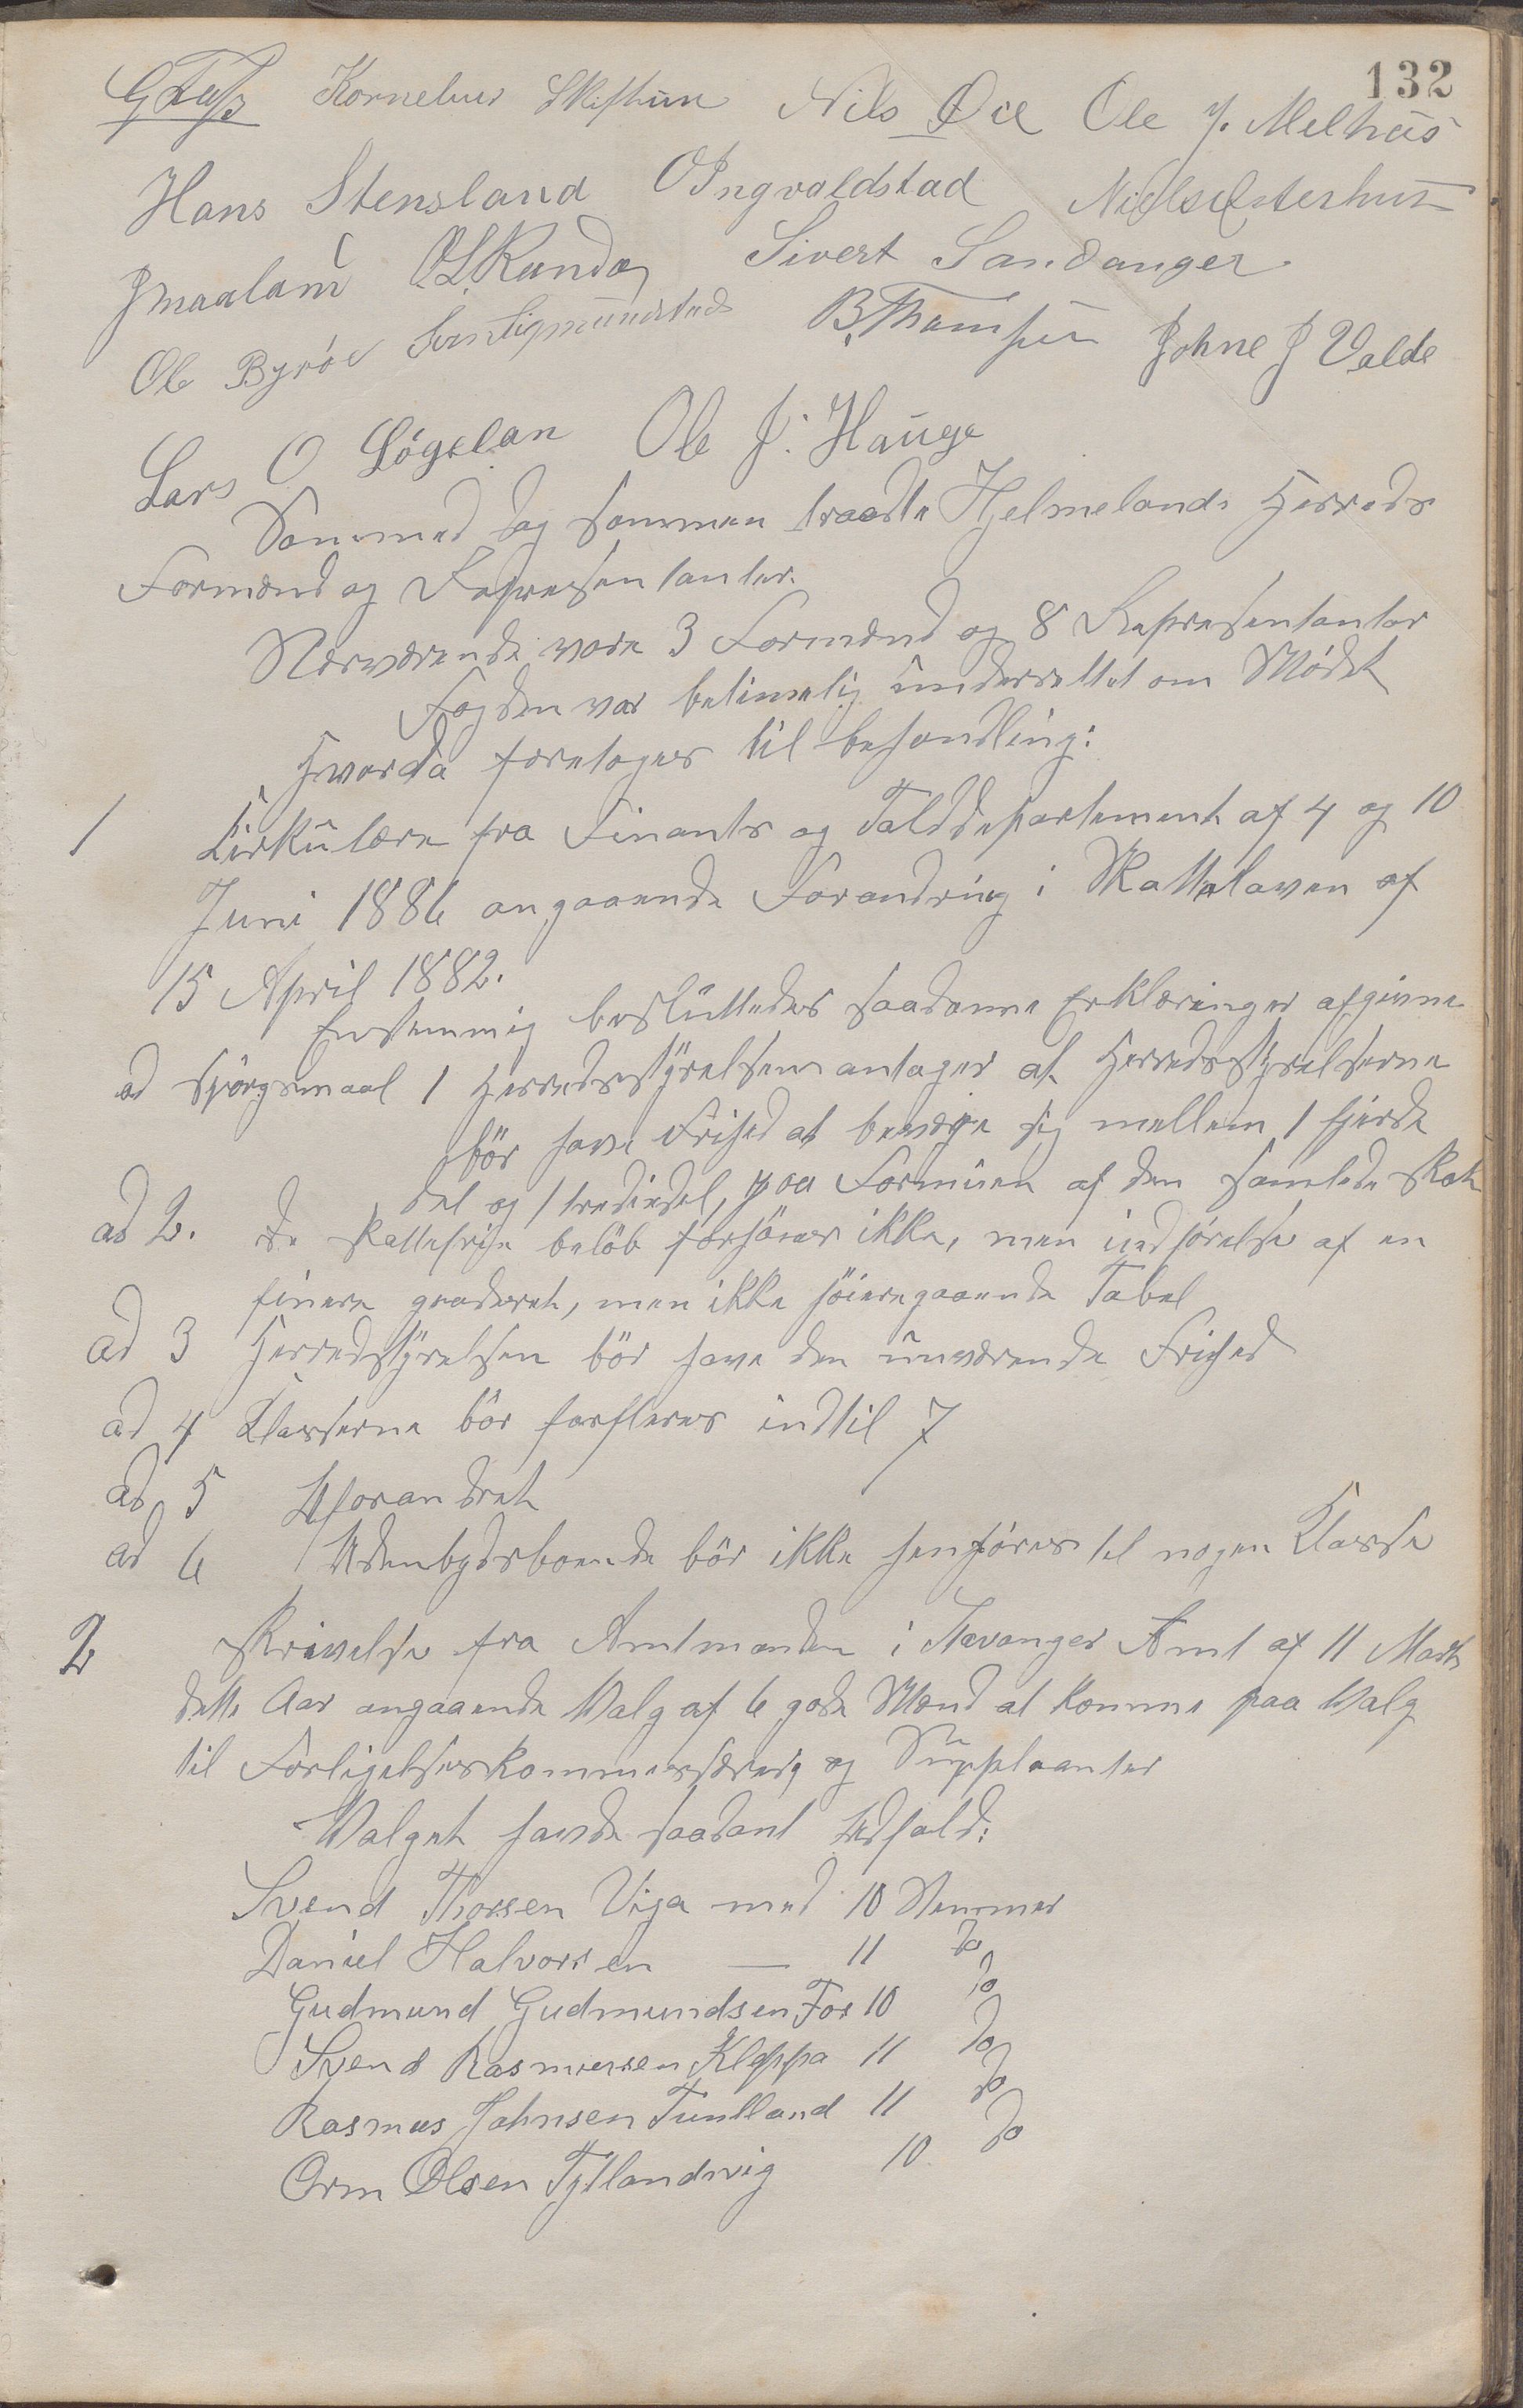 132
Kornelius Skiftun Nils Øie Ole J. Melhus
Hans Stensland O Ingvaldstad Niels Østerhus
J Maaland O L Randa Sivert Sandanger
Ole Byröe Sven Sigmundstad B. Thomsen Johne J Valde
Lars O Lögelan Ole J. Hauge
Sammed dag sammen traadte Hjelmelands Herreds
Formænd og Repræsentanter.
Nærværende vare 3 Formænd og 8 Repræsentanter
Fogden var betimelig underrettet om Mödet
Hvorda foretoges til behandling:
1 Cirkulære fra Finants og Tolddepartement af 4 og 10
Juni 1886 angaaende Forandring i Skatteloven af
15 April 1882.
Enstemmig besluttedes saadanne Erklæringer afgivne
ad Spörgsmaal 1 Herredsstyrelsen antager at Herredsstyrelserne
bör have Frihed at bevæge sig mellem 1 fjerde
del og 1 trediedel, paa Formuen af den samlede Skat
ad 2. de skattefrie belöb forhöies ikke, men indförelse af en
finere graderet, men ikke höieregaaende Tabel
ad 3 Herredsstyrelsen bör have den nuværende Frihed
ad 4 Klasserne bör forfleres indtil 7
ad 5 Uforandret
ad 6 Udenbygdsboende bör ikke henföres til nogen Klasse
2 Skrivelse fra Amtmanden i Stavanger Amt af 11 Marts
dette Aar angaaende Valg af 6 gode Mænd at komme paa Valg
til Forligelseskommissærer og Suppleanter
Valget havde saadant Udfald:
Svend Thorsen Viga med 10 Stemmer
Daniel Halvorsen — 11 do
Gudmund Gudmundsen Fos 10 do
Svend Rasmussen Kleppa 11 do
Rasmus Johnsen Tuntland 11 do
Orm Olsen Tytlandsvig 10 do